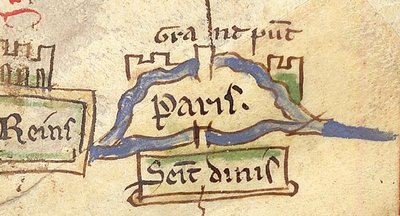 Grant punt
Paris.
Reins
Seint dinis